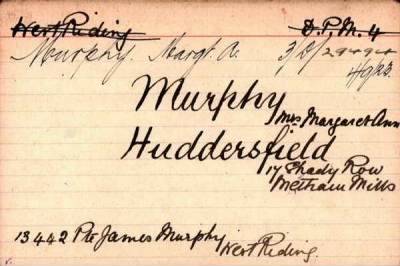 West Riding D.P.M. 4
Murphy. Margt. A. 3/D/
Murphy
Mrs Margaret Ann
Huddersfield
17 Shady Row
Meltham Mills
13442 Pte James Murphy
West Riding.